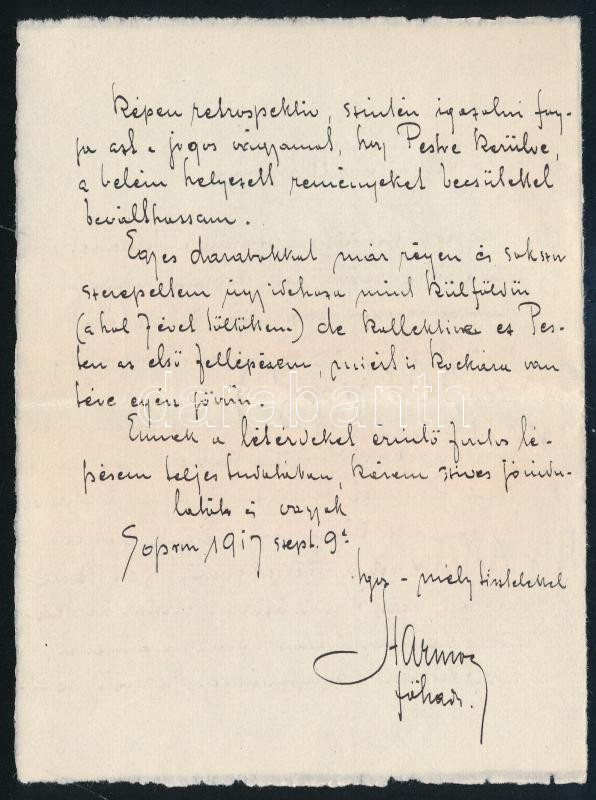 képen retrospektiv, szintén igazolni fog-
ja azt a jogos vágyamat, hogy Pestre kerülve,
a belém helyezett reményeket becsülettel
beválthassam.
Egyes darabokkal már régen és sokszor
szerepeltem úgy idehaza mint külföldön
(ahol 7 évet töltöttem) de kollektive ez Pes-
ten az első fellépésem, miért is kockára van
téve egyén jövőm.
Ennek a létérdeket érintő fontos lé-
pésem teljes tudatában, kérem szives jóindu-
latát és vagyok
Sopron 1917 szept. 9.
igaz - mély tisztelettel
Harmos
főhadn.
darabanth